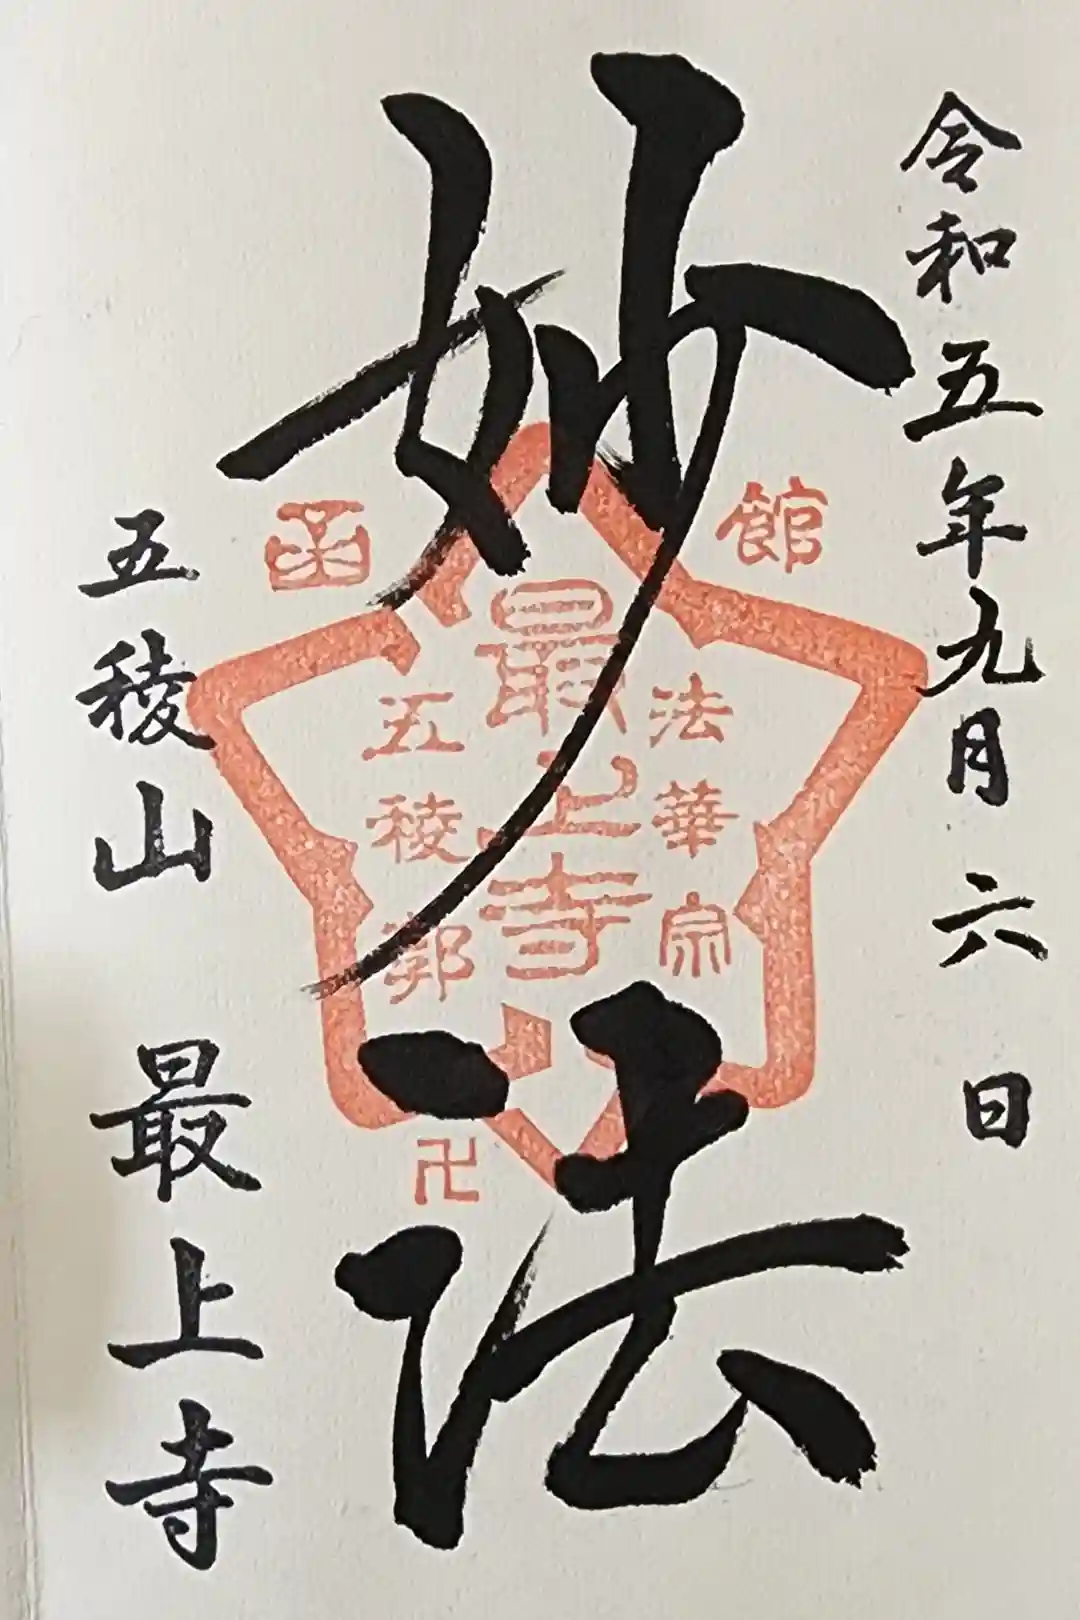 令和五年九月六日
妙法
函館
法華宗
最上寺
五稜郭
卍
五稜山 最上寺